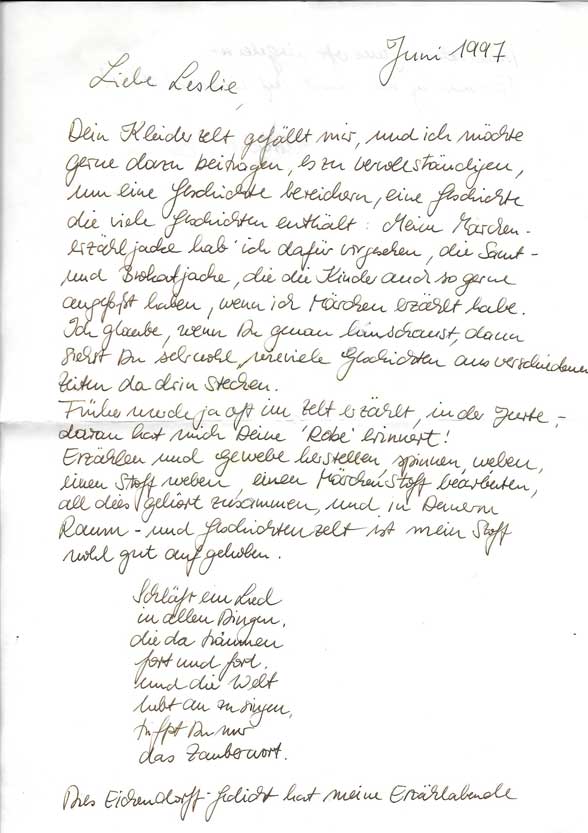 Juni 1997
Liebe Leslie,
Dein Kleiderzelt gefällt mir, und ich möchte
gerne dazu beitragen, es zu vervollständigen,
um eine Geschichte bereichern, eine Geschichte
die viele Geschichten enthält: Meine Märchen-
erzähljacke hab' ich dafür vorgesehen, die Samt-
und Brokatjacke, die die Kinder auch so gerne
angefaßt haben, wenn ich Märchen erzählt habe.
Ich glaube, wenn Du genau hinschaust, dann
siehst Du sehr wohl, wieviele Geschichten aus verschiedenen
Zeiten da drin stecken.
Früher wurde ja oft im Zelt erzählt, in der Jurte, -
daran hat mich Deine 'Robe' erinnert!
Erzählen und Gewebe herstellen, spinnen, weben,
einen Stoff weben, einen Märchenstoff bearbeiten,
all dies gehört zusammen, und in Deinem
Raum- und Geschichtenzelt ist mein Stoff
wohl gut aufgehoben.
Schläft ein Lied
in allen Dingen,
die da träumen
fort und fort.
und die Welt
hebt an zu singen,
triffst Du nur
das Zauberwort.
Dies Eichendorff-Gedicht hat meine Erzählabende